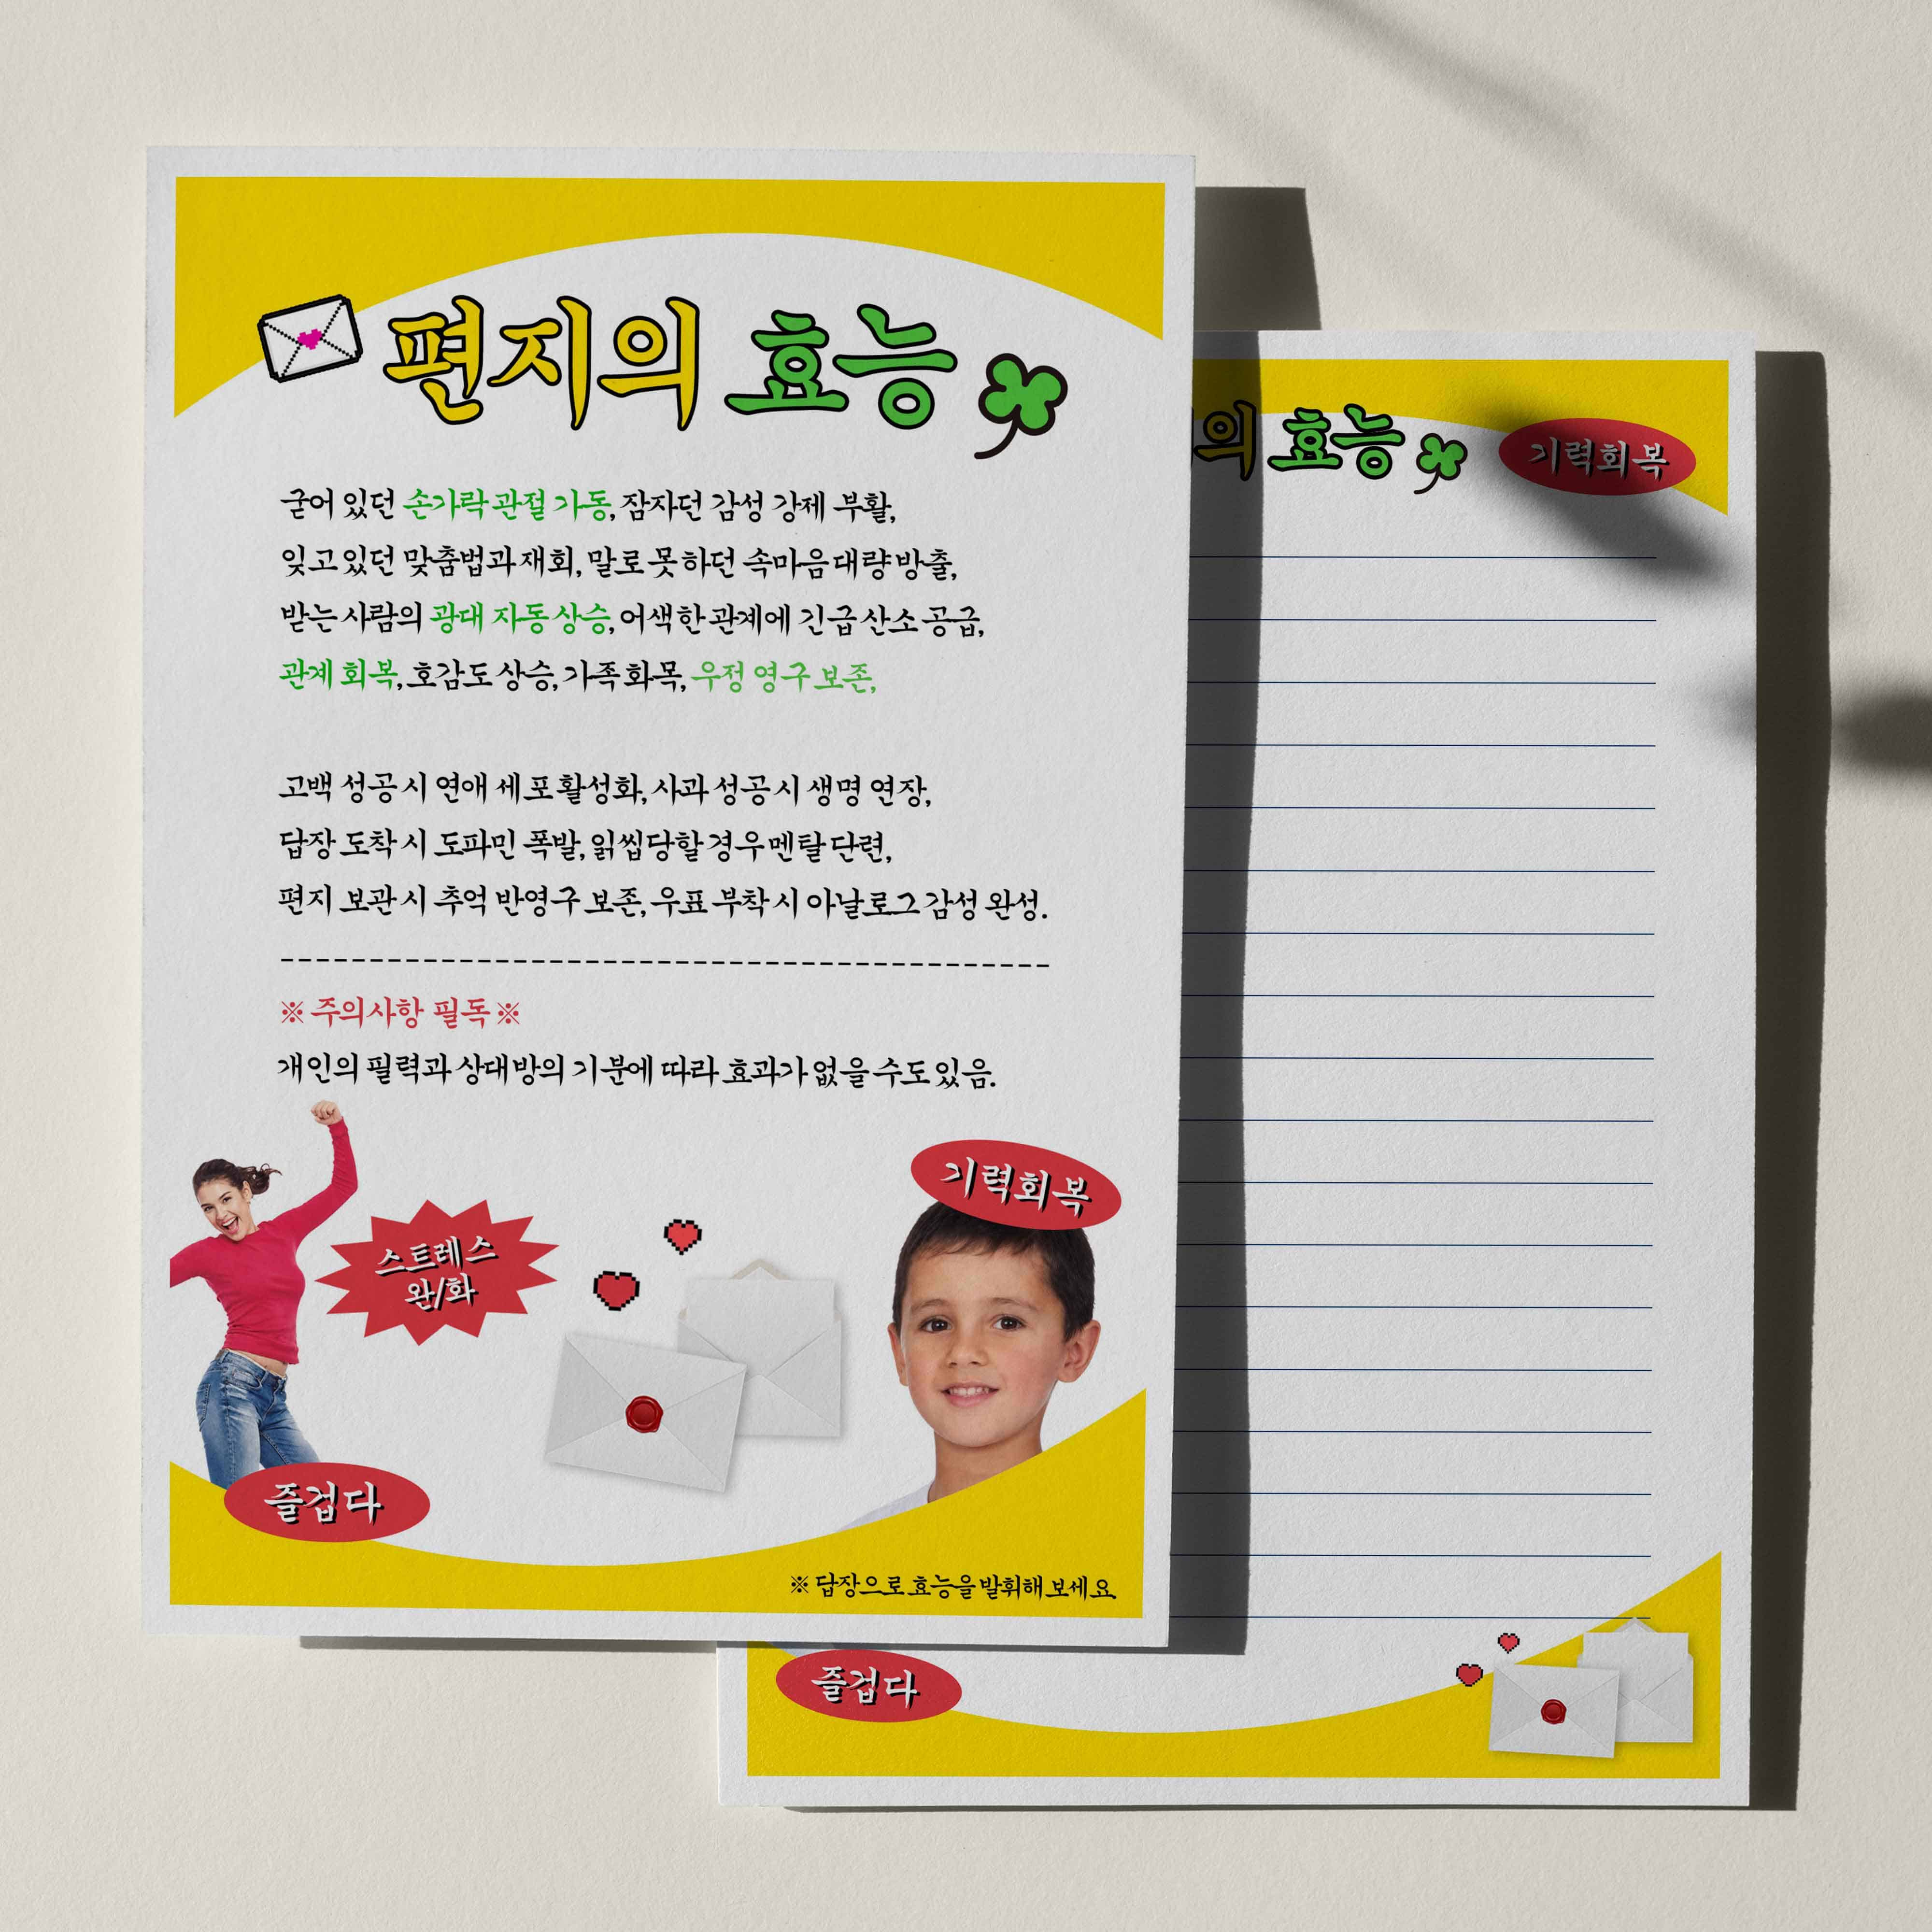 편지의 효능
굳어 있던 손가락 관절 가동, 잠자던 감성 강제 부활,
잊고 있던 맞춤법과 재회, 말로 못 하던 속마음 대량 방출,
받는 사람의 광대 자동 상승, 어색한 관계에 긴급 산소 공급,
관계 회복, 호감도 상승, 가족 화목, 우정 영구 보존,
고백 성공 시 연애 세포 활성화, 사과 성공 시 생명 연장,
답장 도착 시 도파민 폭발, 읽씹당할 경우 멘탈 단련,
편지 보관 시 추억 반영구 보존, 우표 부착 시 아날로그 감성 완성.
※ 주의사항 필독 ※
개인의 필력과 상대방의 기분에 따라 효과가 없을 수도 있음.
기력회복
스트레스
완/화
즐겁다
※ 답장으로 효능을 발휘해 보세요
의 효능
기력회복
즐겁다